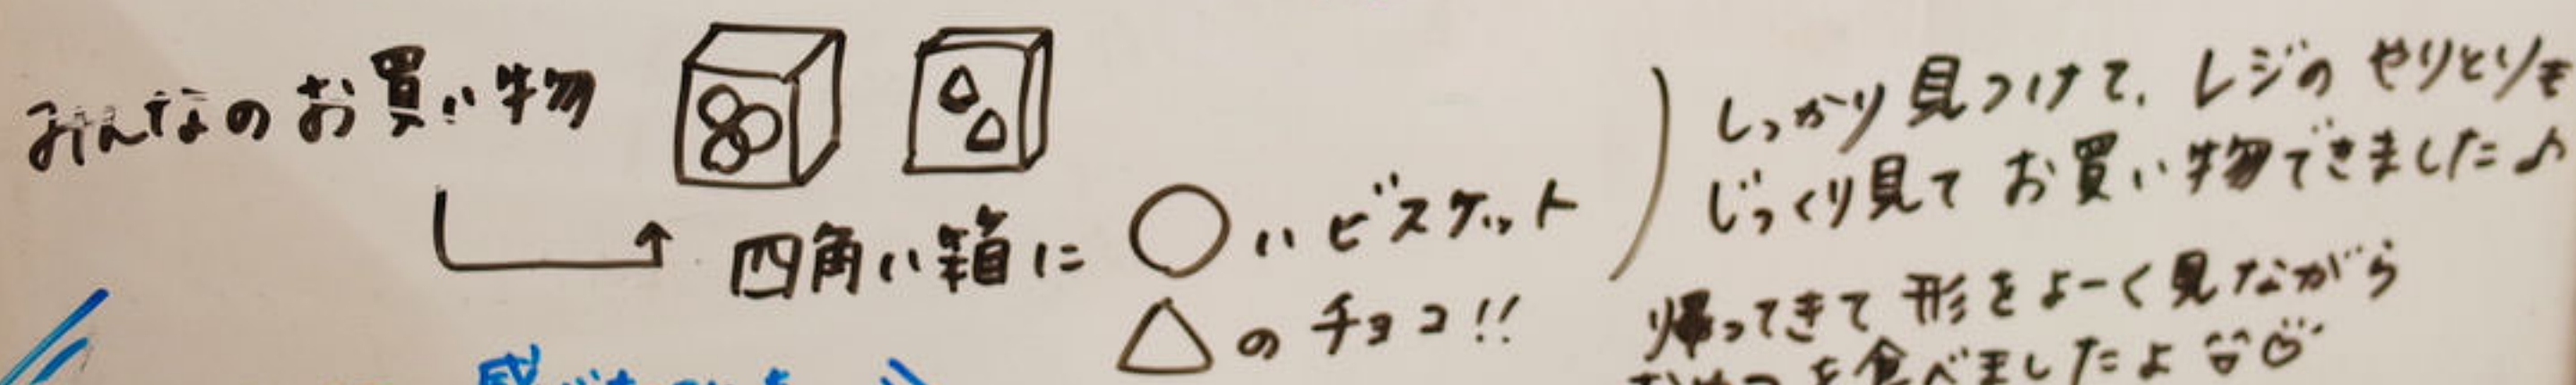 みんなのお買い物
四角い箱に ○いビスケット
△のチョコ!!
しっかり見つけて、レジのやりとりも
じっくり見てお買い物できました♪
帰ってきて形をよーく見ながら
を食べましたよ